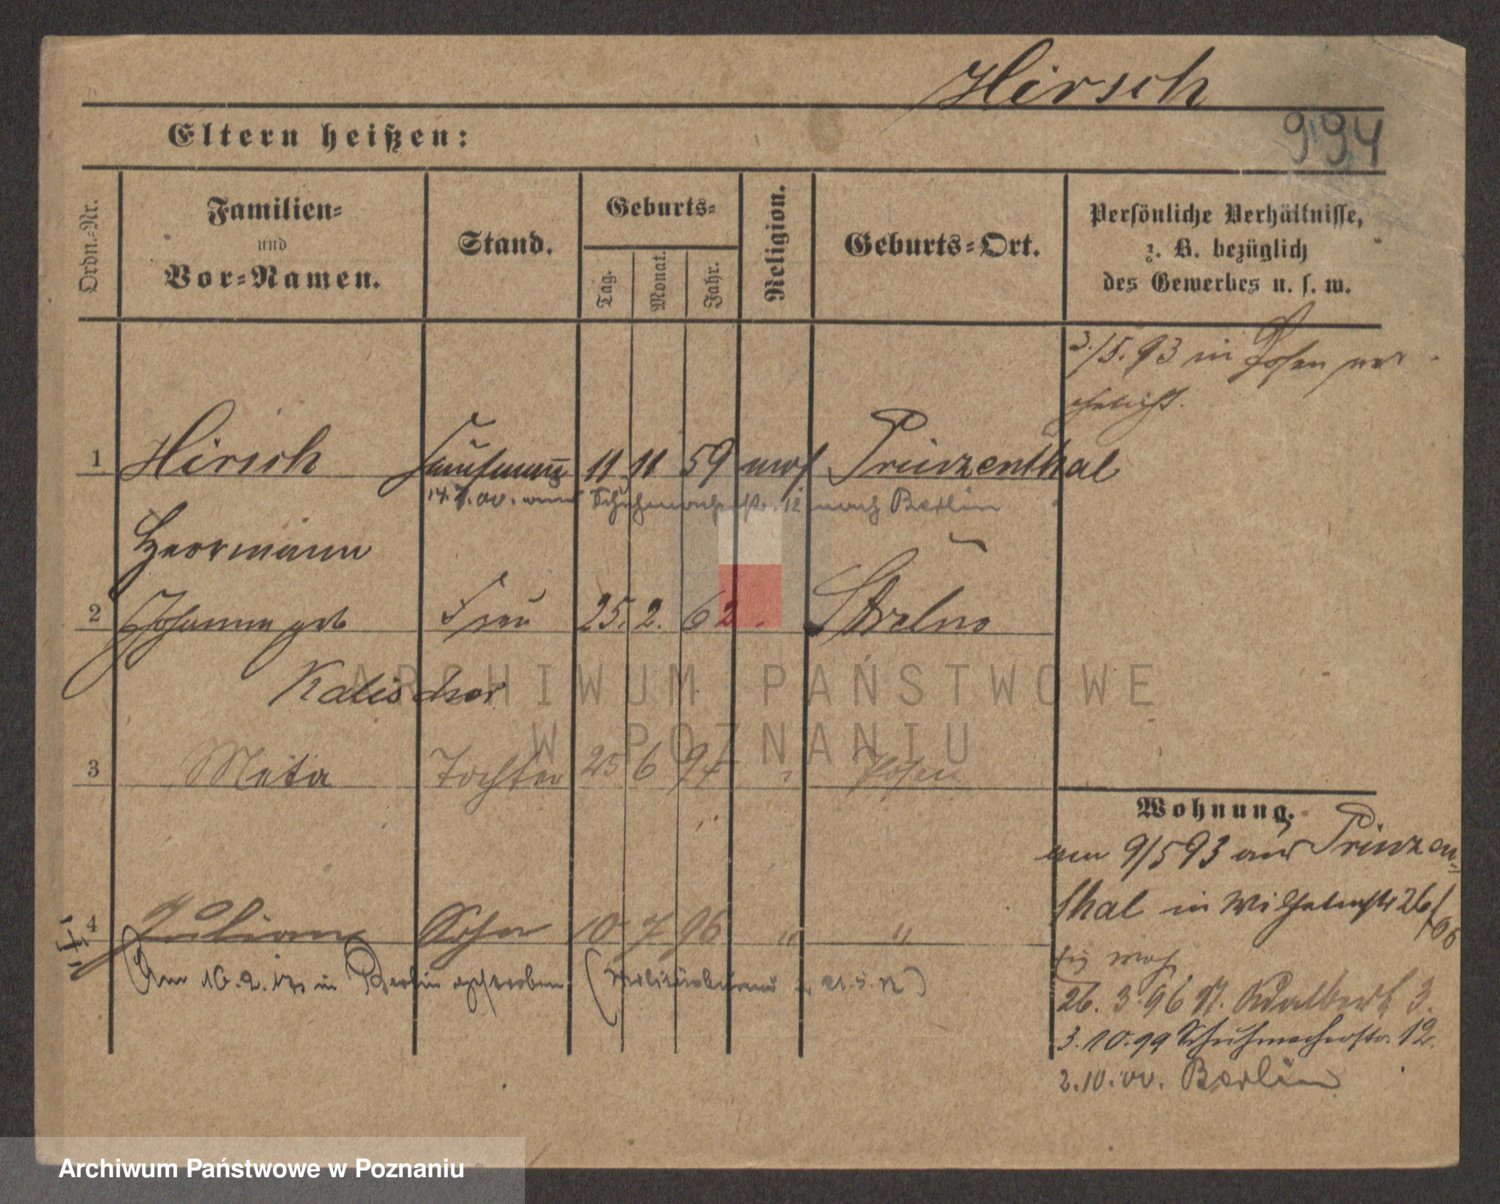 Hirsch
994
Eltern heißen:
Ordn.-Nr.
Familien-
und
Vor-Namen.
Stand.
Geburts-
Tag.
Monat.
Jahr.
Religion.
Geburts-Ort.
Persönliche Verhältnisse,
z. B. bezüglich
des Gewerbes u. s. w.
3./5.93 in Posen ver
ehelicht.
1 Hirsch Kaufmann 11 11 59 mos Prinzenthal
Schuhmacherstr. 12 nach Berlin
Herrmann
2 Johanna geb Frau 25. 2. 62 Strelno
Kalischer
3 Meta Tochter 25 6 94 " Posen
4 Julian Sohn 10 7 96 " "
Am 16.2.17 in Berlin gestorben
Wohnung.
am 9/5 93 aus Prinzen-
thal in Wilhelmstr 26/
26. 3. 96 St. Adalbert 3.
3.10.99 Schuhmacherstr. 12.
2.10.00. Berlin
ARCHIWUM PAŃSTWOWE
W POZNANIU
Archiwum Państwowe w Poznaniu